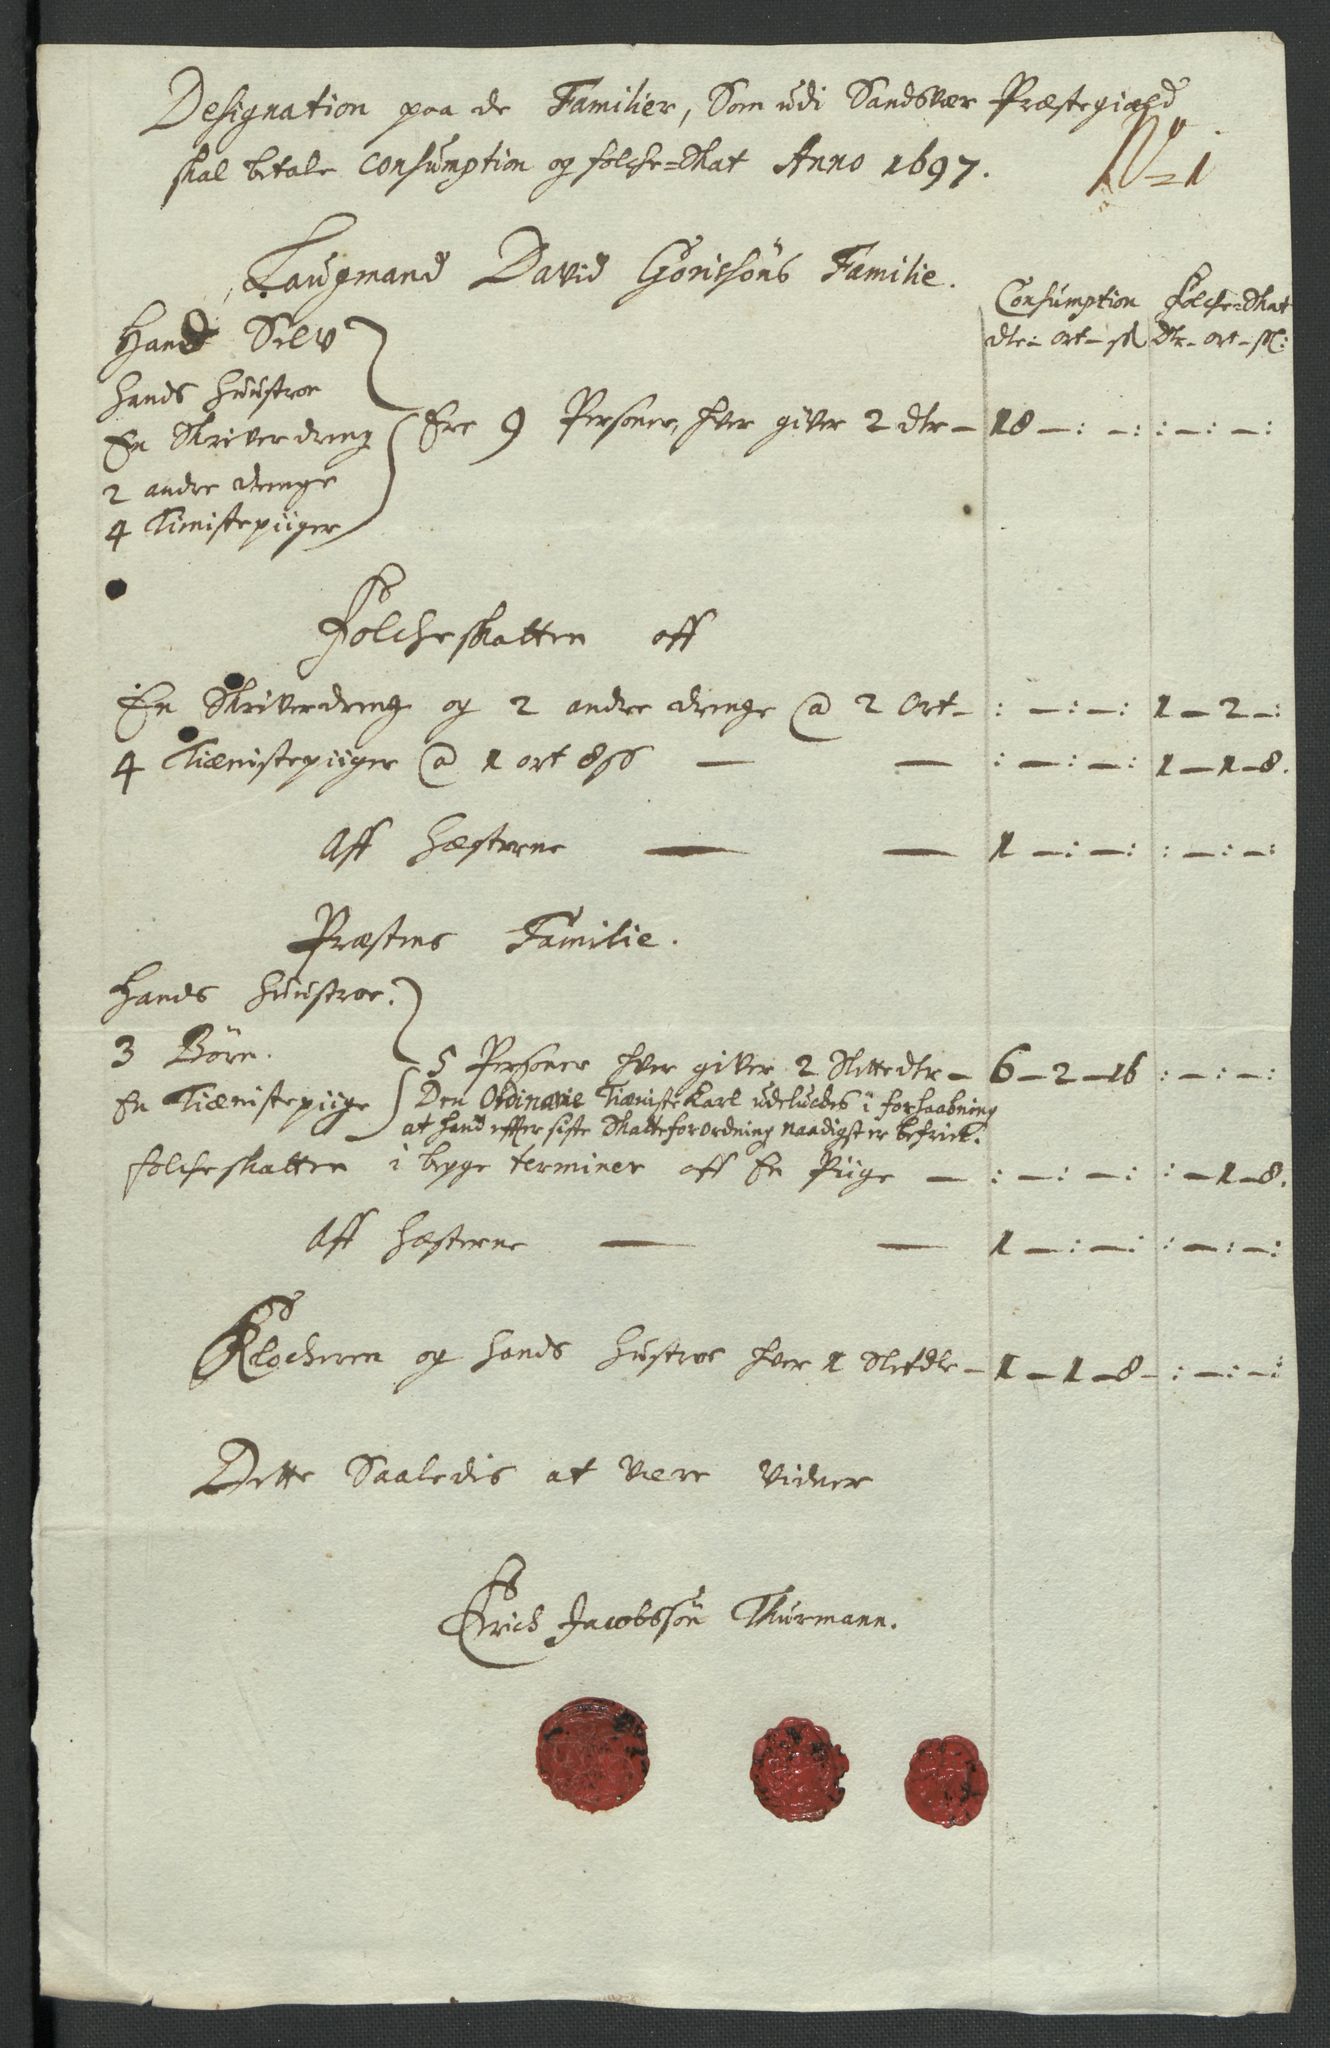 Designation paa de Familier, Som udi Sandsvær Præstegiæld
skal betale Consumption og folche-skat Anno 1697.
No 1
Laugmand David Görissöns Familie.
Consumption Folche-skat
dlr - ort - sk Dlr - ort - sk:
Hand Selv
hands huustroe
En Skriverdreng
2 andre drenge
4 Tienistepiiger
Ere 9 Personer, hver giver 2 dlr - 18 - : - : : - : - :
Folcheskatten aff
En Skriverdreng og 2 andre drenge @ 2 Ort - : - : - : 1 - 2 - :
4 Tiænistepiiger @ 1 ort 8 sk - - : - : - : 1 - 1 - 8.
Aff hæsterne - - 1 - : - : : - : - :
Præstens Familie.
Hands huustroe.
3 Börn.
En Tiænistepiige
5 Personer hver giver 2 Slettedlr - 6 - 2 - 16 : - : - :
Den Ordinarie Tiæniste Karl udeluches i forhaabning
at hand effter siste Skatteforordning naadigst er befriet.
folcheskatten i begge terminer aff En Piige - : - : - : : - 1 - 8.
Aff hæsterne - - 1 - : - : : - : - :
Klocheren og hands hustroe hver 1 Sletdlr - 1 - 1 - 8 - : - : - :
Dette Saaledis at være vidner
Erich Jacobssön Thurmann.